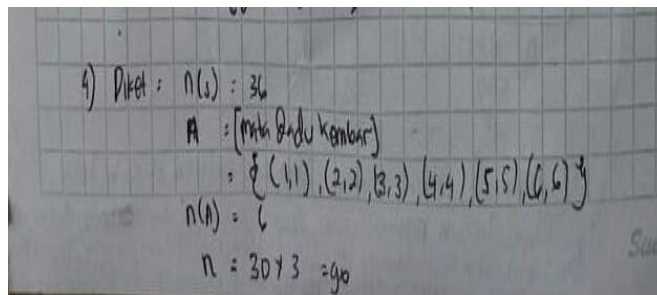 4) Diket : n(s) : 36
A : [mata Dadu kembar]
: { (1,1) , (2,2) , (3,3) , (4,4) , (5,5) , (6,6) }
n(A) : 6
n : 30 x 3 = 90